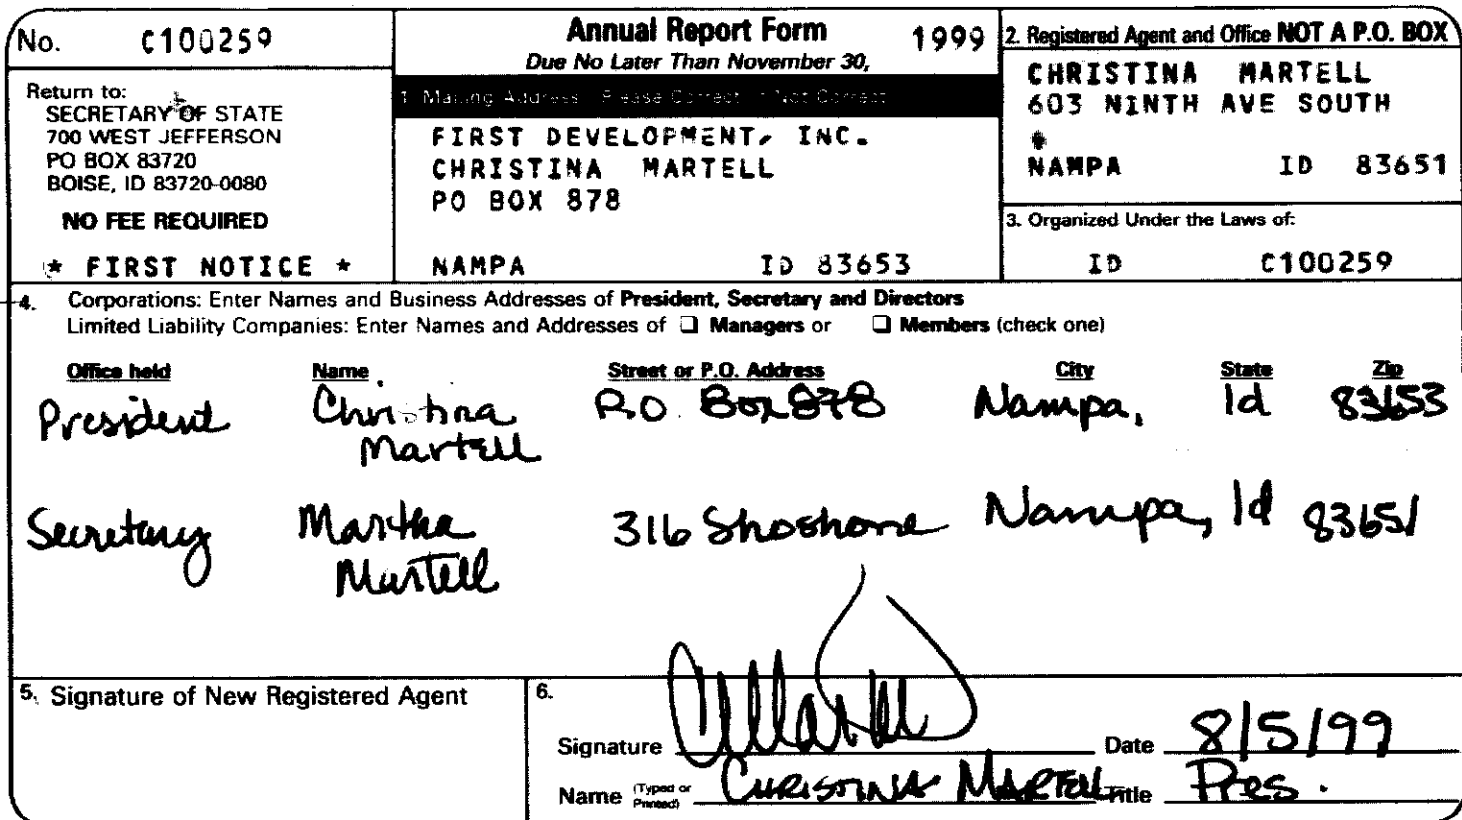 No. C100259
Return to:
SECRETARY OF STATE
700 WEST JEFFERSON
PO BOX 83720
BOISE, ID 83720-0080
NO FEE REQUIRED
* FIRST NOTICE *
Annual Report Form 1999
Due No Later Than November 30,
1. Mailing Address: Please Correct If Not Correct
FIRST DEVELOPMENT, INC.
CHRISTINA MARTELL
PO BOX 878
NAMPA ID 83653
2. Registered Agent and Office NOT A P.O. BOX
CHRISTINA MARTELL
603 NINTH AVE SOUTH
NAMPA ID 83651
3. Organized Under the Laws of:
ID C100259
4. Corporations: Enter Names and Business Addresses of President, Secretary and Directors
Limited Liability Companies: Enter Names and Addresses of ☐ Managers or ☐ Members (check one)
Office held Name Street or P.O. Address City State Zip
President Christina Martell P.O. Box 878 Nampa, Id 83653
Secretary Martha Martell 316 Shoshone Nampa, Id 83651
5. Signature of New Registered Agent
6.
Signature CMartell Date 8/5/99
Name (Typed or Printed) CHRISTINA MARTELL Title Pres.